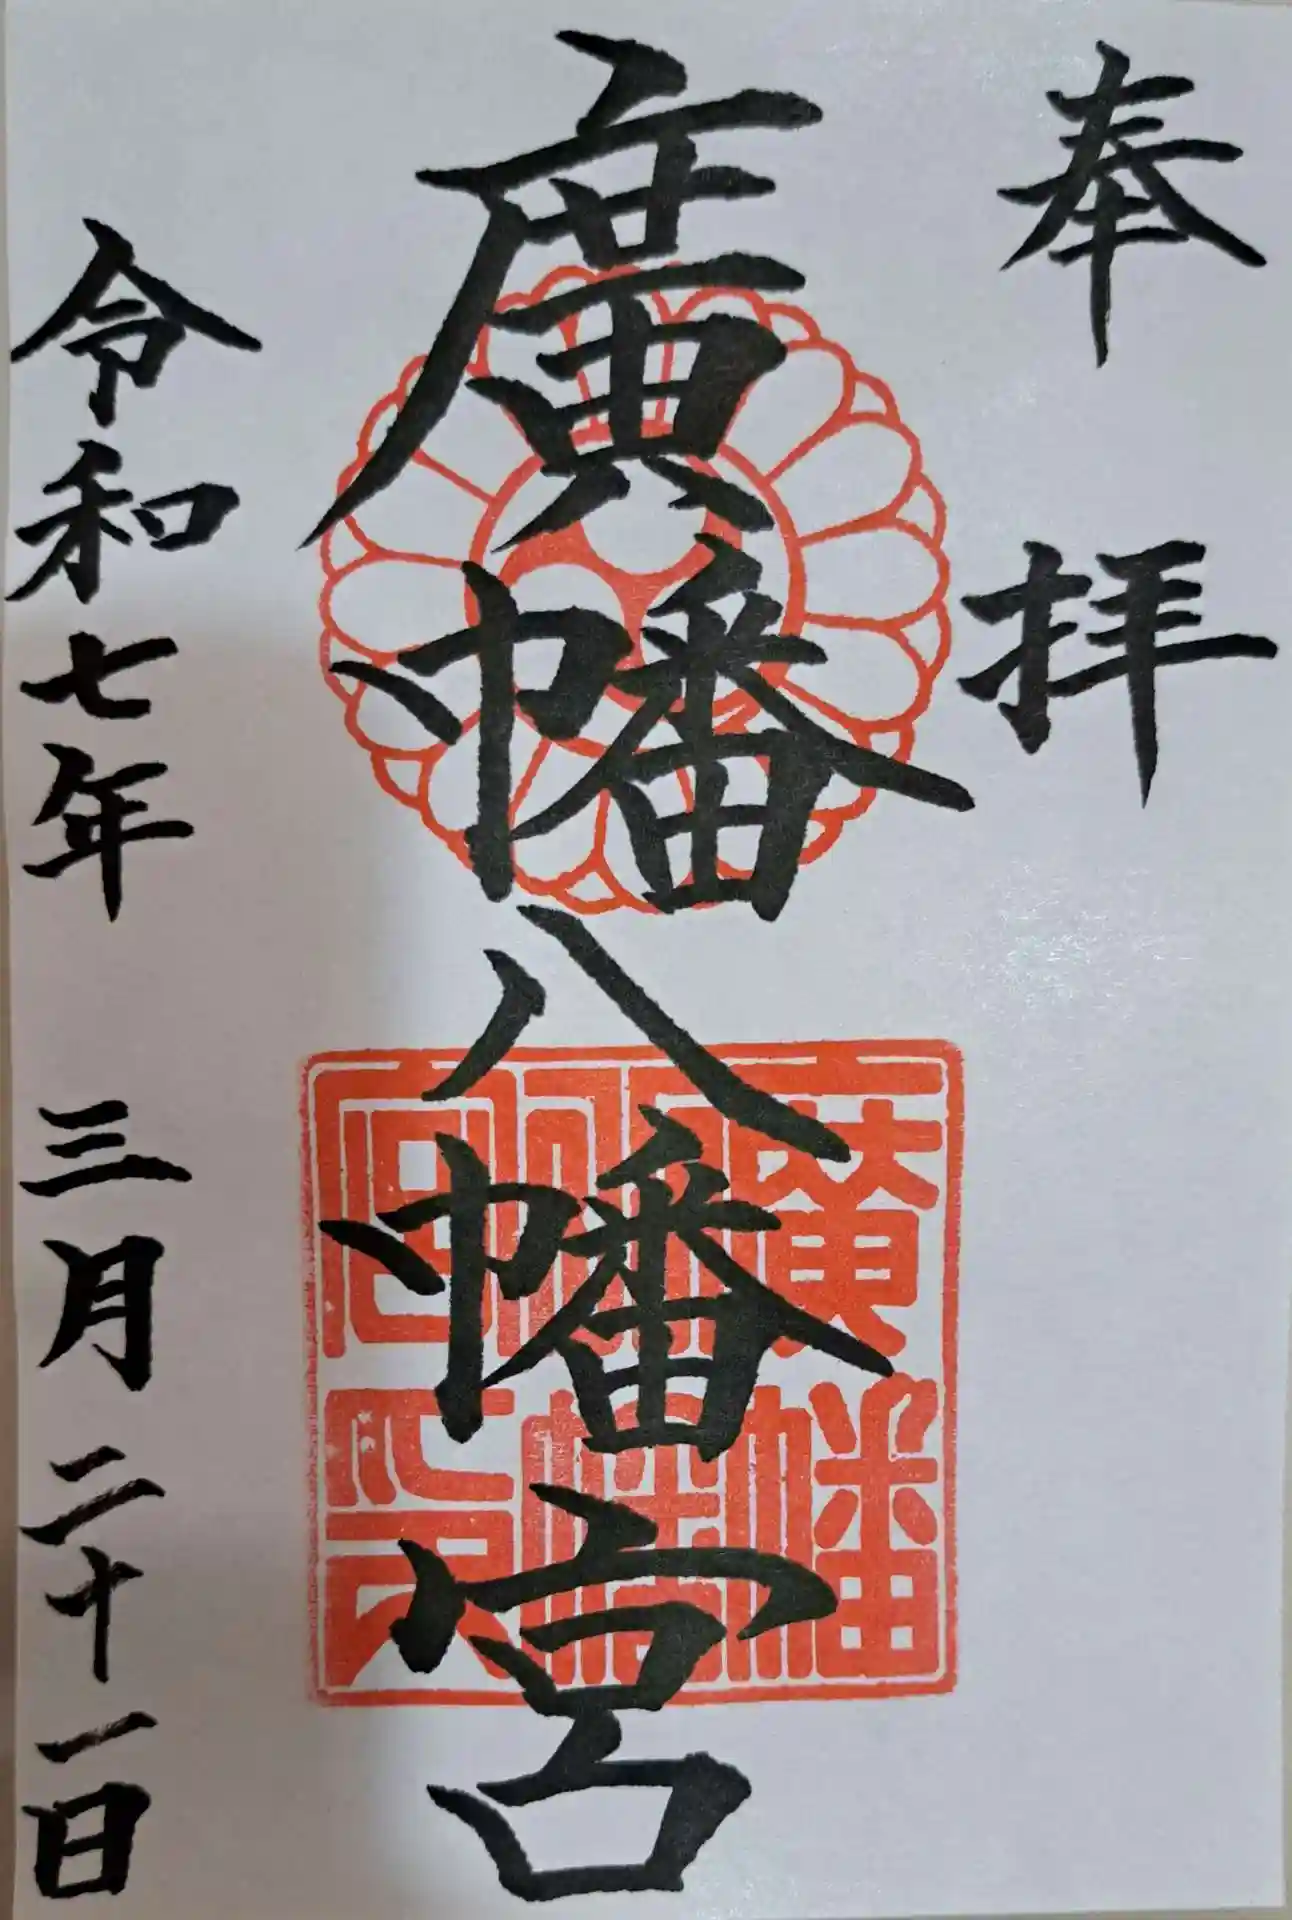 奉拝
廣幡八幡宮
廣幡
八幡
宮印
令和七年 三月 二十一日